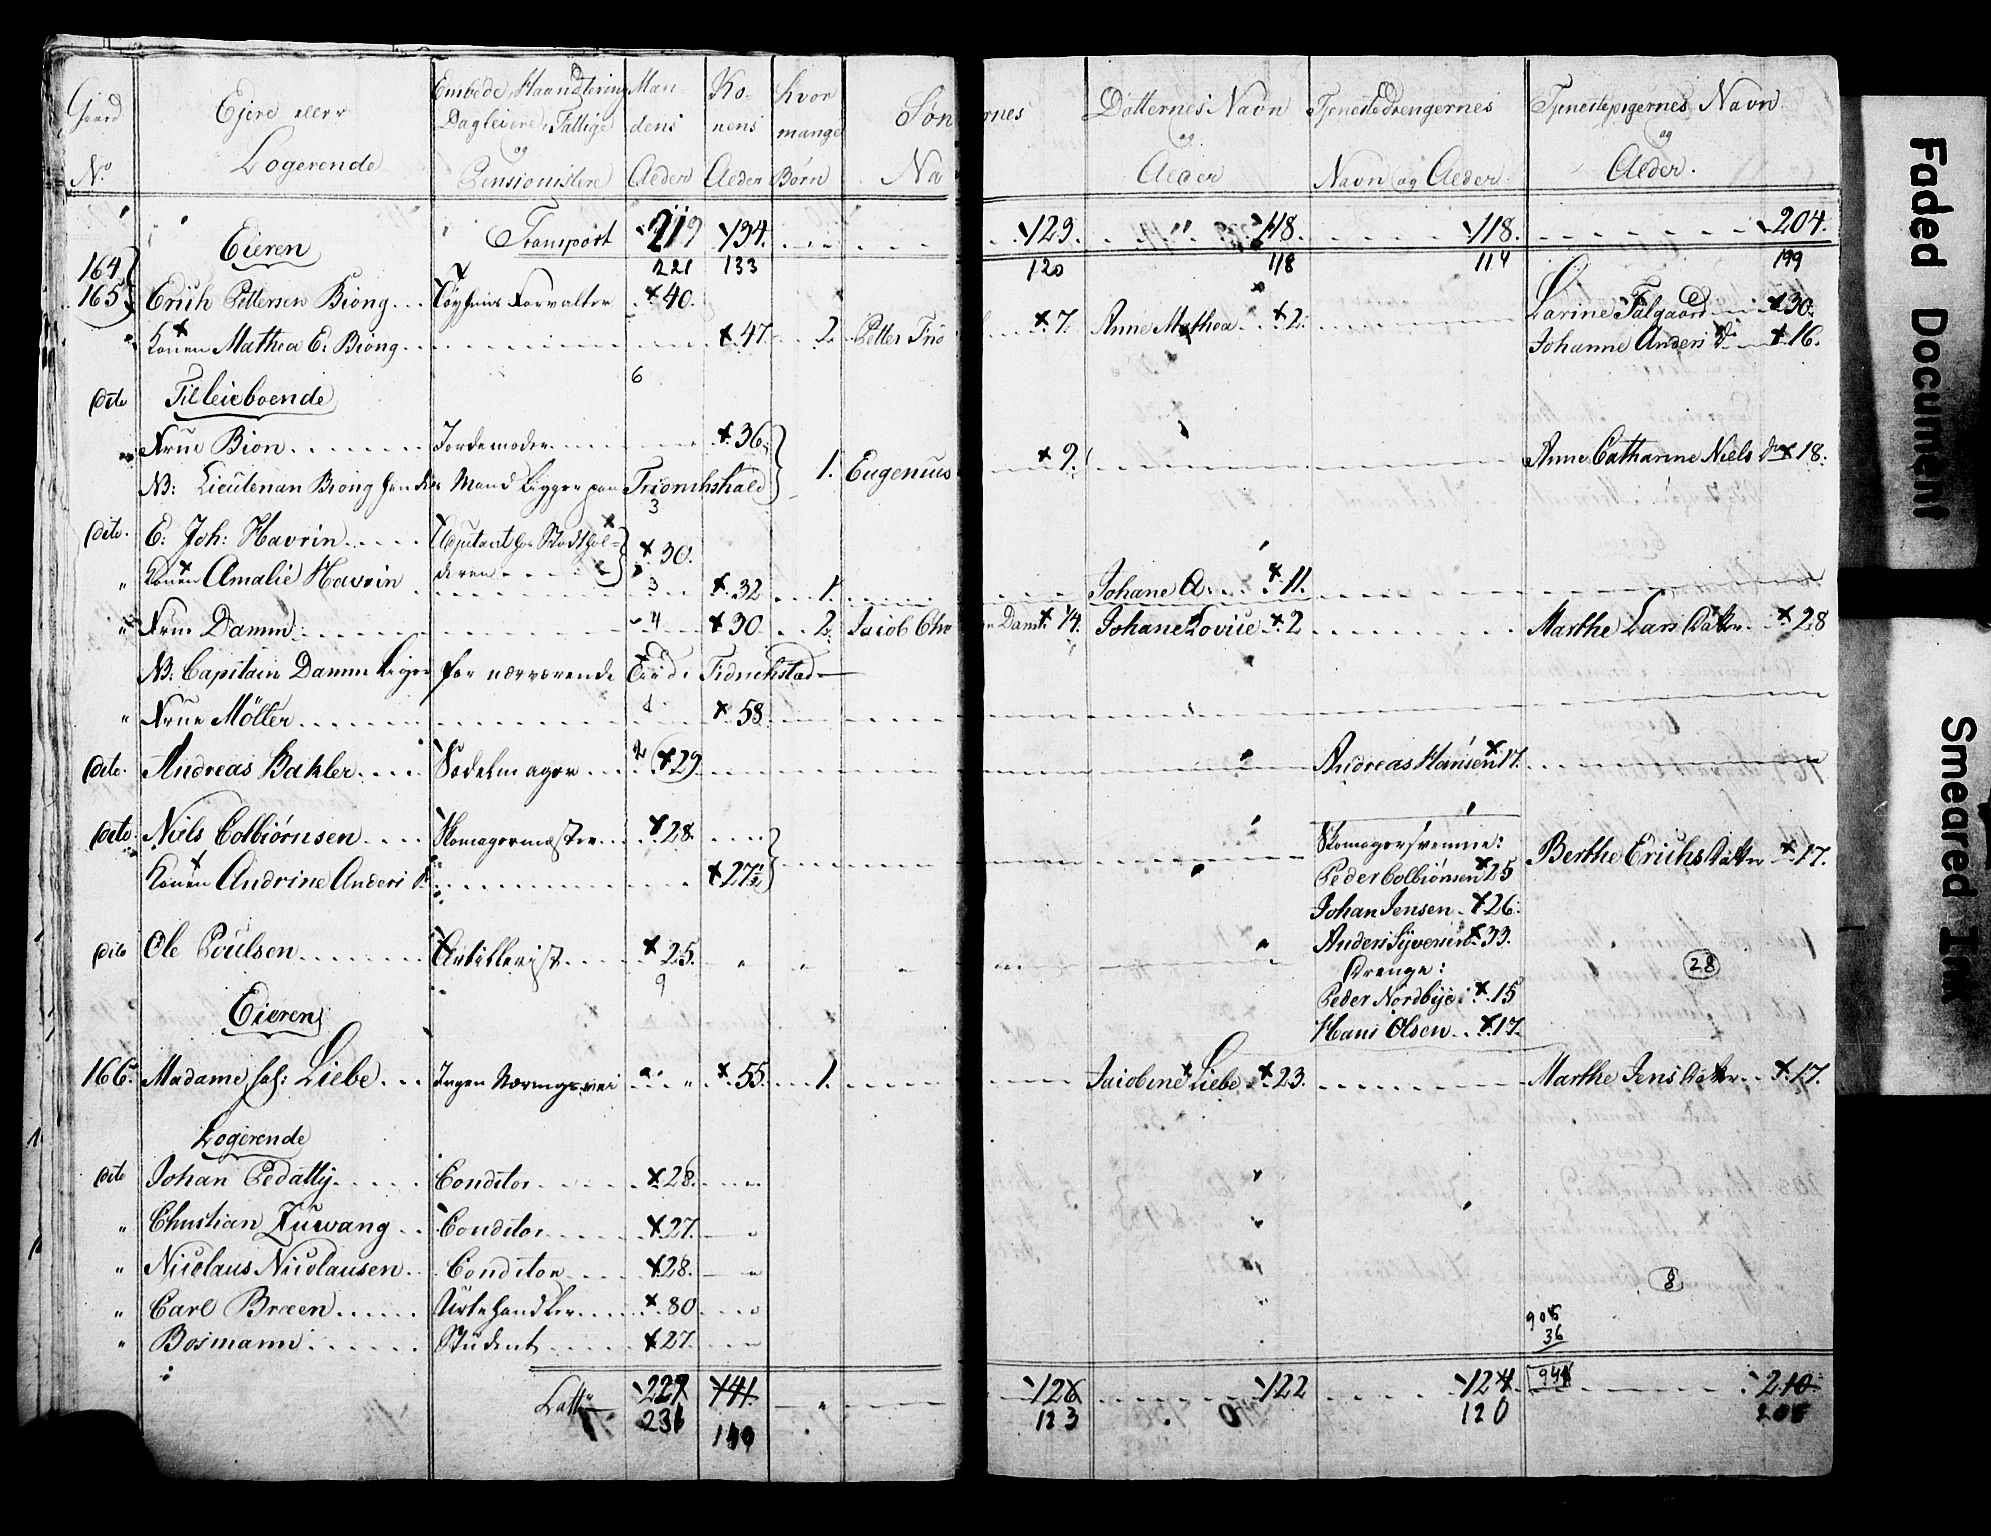 Gaard Ejere eller Embede, Haandtering Man Ko- hvor Søn rnes Døtternes Navn Tjenestedrengernes Tjenestepigernes Navn
Logerende Dagleiere, Fattige dens nens mange og og
No og Pensionistere Alder Alder Børn Na Alder Navn og Alder. Alder.
Eieren Transport 219 134. 123. 118. 118. 204.
164 221 133 120 118 114 199
165 Erich Pettersen Biong Tøyhuus Forvalter 40. Larine Falgaard 30.
Konen Mathea E. Biong 47. 2. Petter Frö 7. Anne Mathea 2. Johanne Anders D. 16.
dito Tilleieboende 6
Frue Bion Jordemoder 36. 1. Eugenius 9. Anne Catharine Niels D. 18.
NB: Lieutenan Biong hendes Mand ligger paa Friderichshald
3
dito. E. Joh: Havrin Adjutant hos Stadthol- 30.
" Konen Amalie Havrin deren 3 32 1. Johane A. 11.
" Frue Damm 4 30 2. Jacob Chr Dam. 14. Johane Lovise 2 Marthe Lars Datter 28
NB: Capitain Damm ligger for nærværende Tiid i Fidrichstad
" Frue Mölter 58.
dito. Andreas Bakler Sadelmager 2 29 Andreas Hansen 17.
dito. Niels Colbiörnsen Skomagermæster 28. Skomagersvenne: Berthe Erichs Datter 17.
Konen Andrine Anders D. 27½ Peder Colbiörnsen 25
Johan Jensen 26.
dito Ole Poulsen Artillerist 25. Anders Syversen 33. 28
9 Drenge:
Eieren Peder Nordbye 15
Hans Olsen 17.
166. Madame sal: Liebe Ingen Næringsvei " 55. 1. Jacobine Liebe 23. Marthe Jens Datter 17.
Logerende
dito Johan Pedatty Conditor 28.
" Christian Zuwang Conditor 27.
" Nicolaus Nicolausen Conditor 28. 8
" Carl Bræen Urtehandler 80 905
" Bosmann Student 27. 36
Latt 229 141. 126 122 124 941 210
231 140 123 120 205
Faded Document
Smeared Ink